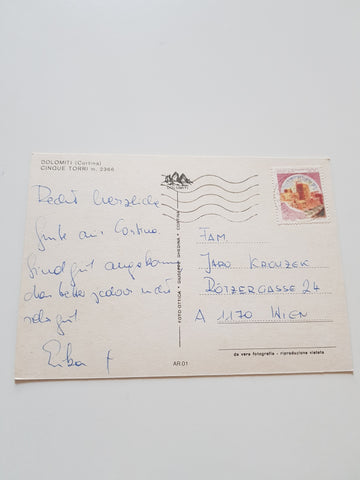 DOLOMITI (Cortina)
CINQUE TORRI m. 2366
DOLOMITI
Recht herzliche
Grüße aus Cortina.
Sind gut angekommen
das Wetter jedoch nicht
sehr gut
Erika +
FOTO OTTICA * GIUSEPPE GHEDINA * CORTINA
FAM.
JARO KROUZEK
RÖTZERGASSE 24
A 1170 WIEN
AR.01
da vera fotografia - riproduzione vietata